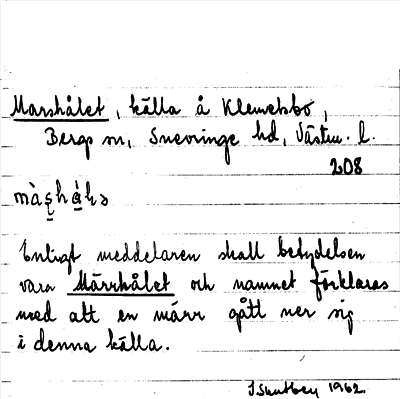 Marshålet, källa å Klemetsbo,
Bergs sn, Snevringe hd, Västm. l.
208
Enligt meddelaren skall betydelsen
vara Märrhålet och namnet förklaras
med att en märr gått ner sig
i denna källa.
1962